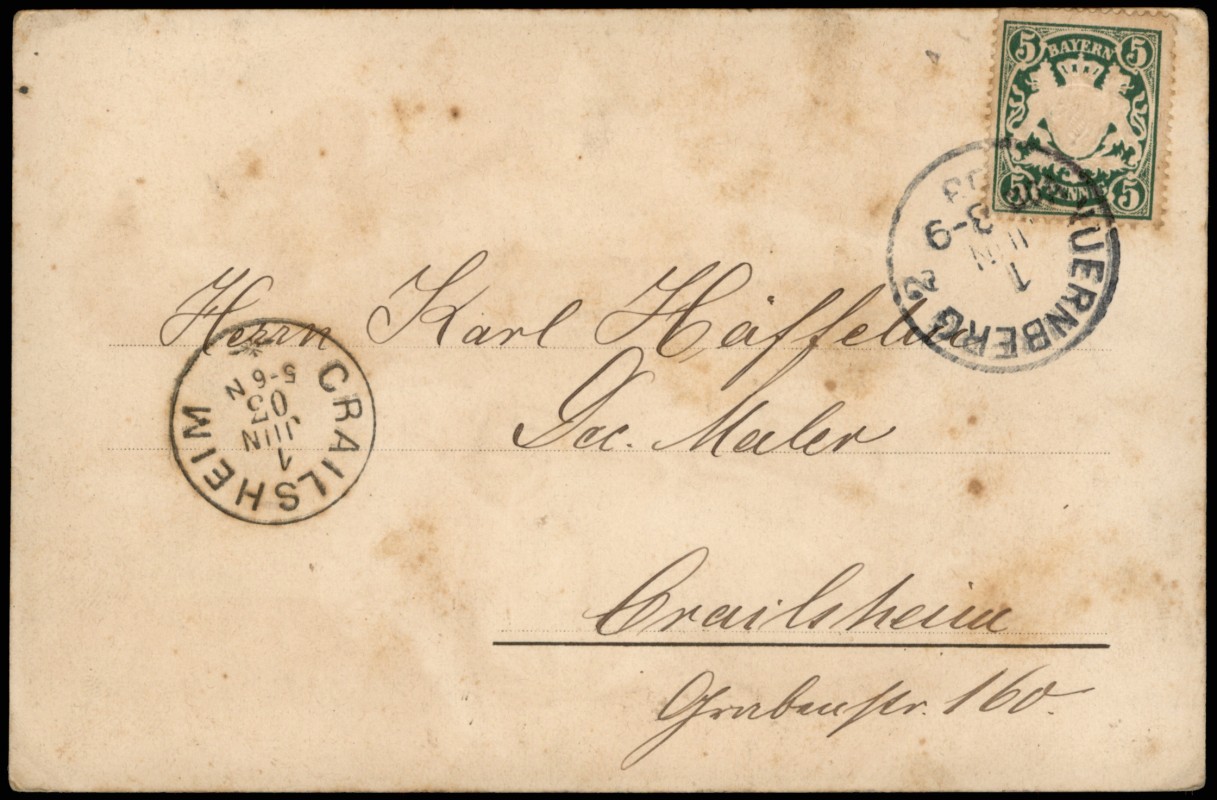 5 BAYERN 5
5 PFENNIG 5
NUERNBERG 2
1
JUN
3-9
03
Herrn Karl
Maler
CRAILSHEIM
1
JUN
03
5-6 N
Crailsheim
Grabenstr. 160.